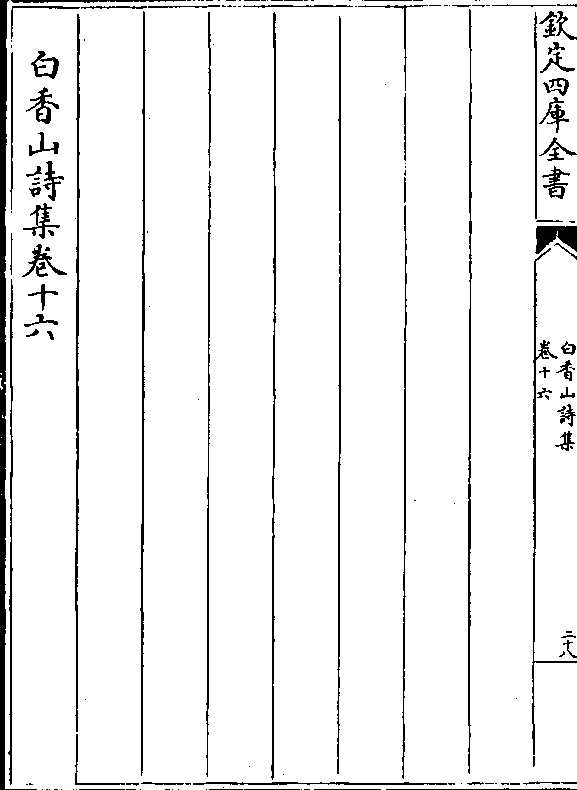 欽定四庫全書
白香山詩集
卷十六
二十八
白香山詩集卷十六